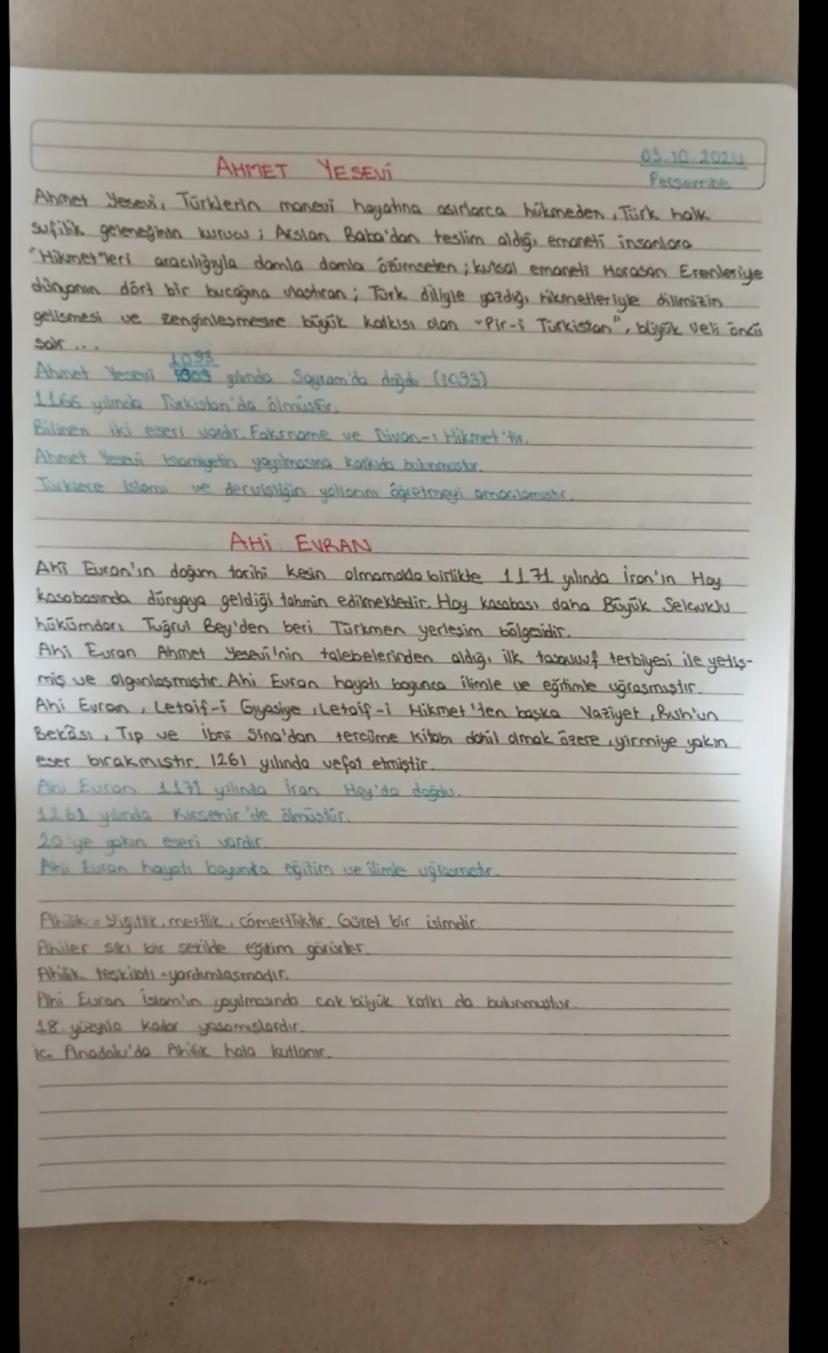 AHMET YESEVİ
03.10.2024
Perşembe
Ahmet Yesevi, Türklerin manevi hayatına asırlarca hükmeden, Türk halk
sufilik geleneğinin kurucu; Arslan Baba'dan teslim aldığı emaneti insanlara
"Hikmet"leri aracılığıyla damla damla özümseten; kutsal emaneti Horasan Erenleriye
dünyanın dört bir bucağına ulaştıran; Türk diliyle yazdığı hikmetleriyle dilimizin
gelişmesi ve zenginleşmesine büyük katkısı olan "Pir-i Türkistan", büyük veli öncü
şair ...
1093
Ahmet Yesevi yılında Sayram'da doğdu (1093)
1166 yılında Türkistan'da ölmüştür.
Bilinen iki eseri vardır. Fakrname ve Divan-ı Hikmet'tir.
Ahmet Yesevi İslamiyetin yayılmasına katkıda bulunmuştur.
Türklere İslamı ve dervişliğin yollarını öğretmeyi amaçlamıştır.
AHİ EVRAN
Ahi Evran'ın doğum tarihi kesin olmamakla birlikte 1171 yılında İran'ın Hoy
kasabasında dünyaya geldiği tahmin edilmektedir. Hoy kasabası daha Büyük Selçuklu
hükümdarı Tuğrul Bey'den beri Türkmen yerleşim bölgesidir.
Ahi Evran Ahmet Yesevi'nin talebelerinden aldığı ilk tasavvuf terbiyesi ile yetiş-
miş ve olgunlaşmıştır. Ahi Evran hayatı boyunca ilimle ve eğitimle uğraşmıştır.
Ahi Evran, Letaif-i Gıyasiye, Letaif-i Hikmet'ten başka Vaziyet, Ruh'un
Bekâsı, Tıp ve İbni Sina'dan tercüme kitabı dahil olmak üzere, yirmiye yakın
eser bırakmıştır. 1261 yılında vefat etmiştir.
Ahi Evran 1171 yılında İran Hoy'da doğdu.
1261 yılında Kırşehir'de ölmüştür.
20'ye yakın eseri vardır.
Ahi Evran hayatı boyunca eğitim ve ilimle uğraşmıştır.
Ahilik = Yiğitlik, mertlik, cömertliktir. Güzel bir isimdir.
Ahiler sıkı bir şekilde eğitim görürler.
Ahilik teşkilatı = yardımlaşmadır.
Ahi Evran İslam'ın yayılmasında çok büyük katkı da bulunmuştur.
18. yüzyıla kadar yaşamışlardır.
İç Anadolu'da Ahilik hala kutlanır.